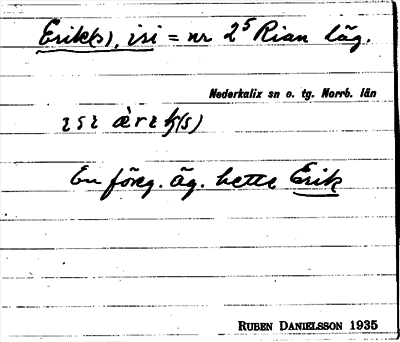 Erik(s), isi = nr 2⁵ Rian läg.
Nederkalix sn o. tg. Norrb. län
ɩsɩ ærɩk(s)
En föreg. äg. hette Erik
RUBEN DANIELSSON 1935